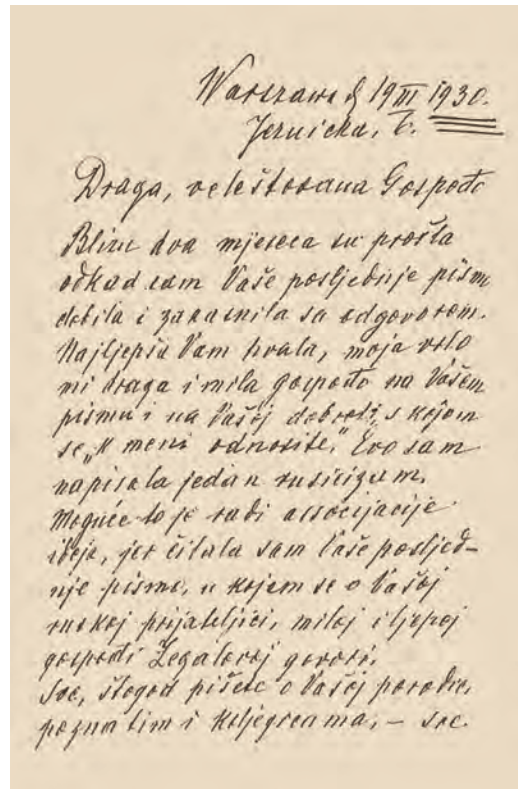 Warszawa, 19 III 1930.
Jezuicka, 6.
Draga, veleštovana Gospođo
Blizu dva mjeseca su prošla
odkad sam Vaše posljednje pismo
dobila i zakasnila sa odgovorom.
Najljepša Vam hvala, moja vrlo
mi draga i mila gospođo na Vašem
pismu i na Vašoj dobroti, s kojom
se „k meni odnosite." Evo sam
napisala jedan rusicizam.
Moguće to je radi associjacije
ideja, jer čitala sam Vaše posljed-
nje pismo, u kojem se o Vašoj
ruskoj prijateljici, miloj i ljepoj
gospođi govori.
Sve, štogod pišete o Vašoj porodici,
poznatim i koljegicama, – sve